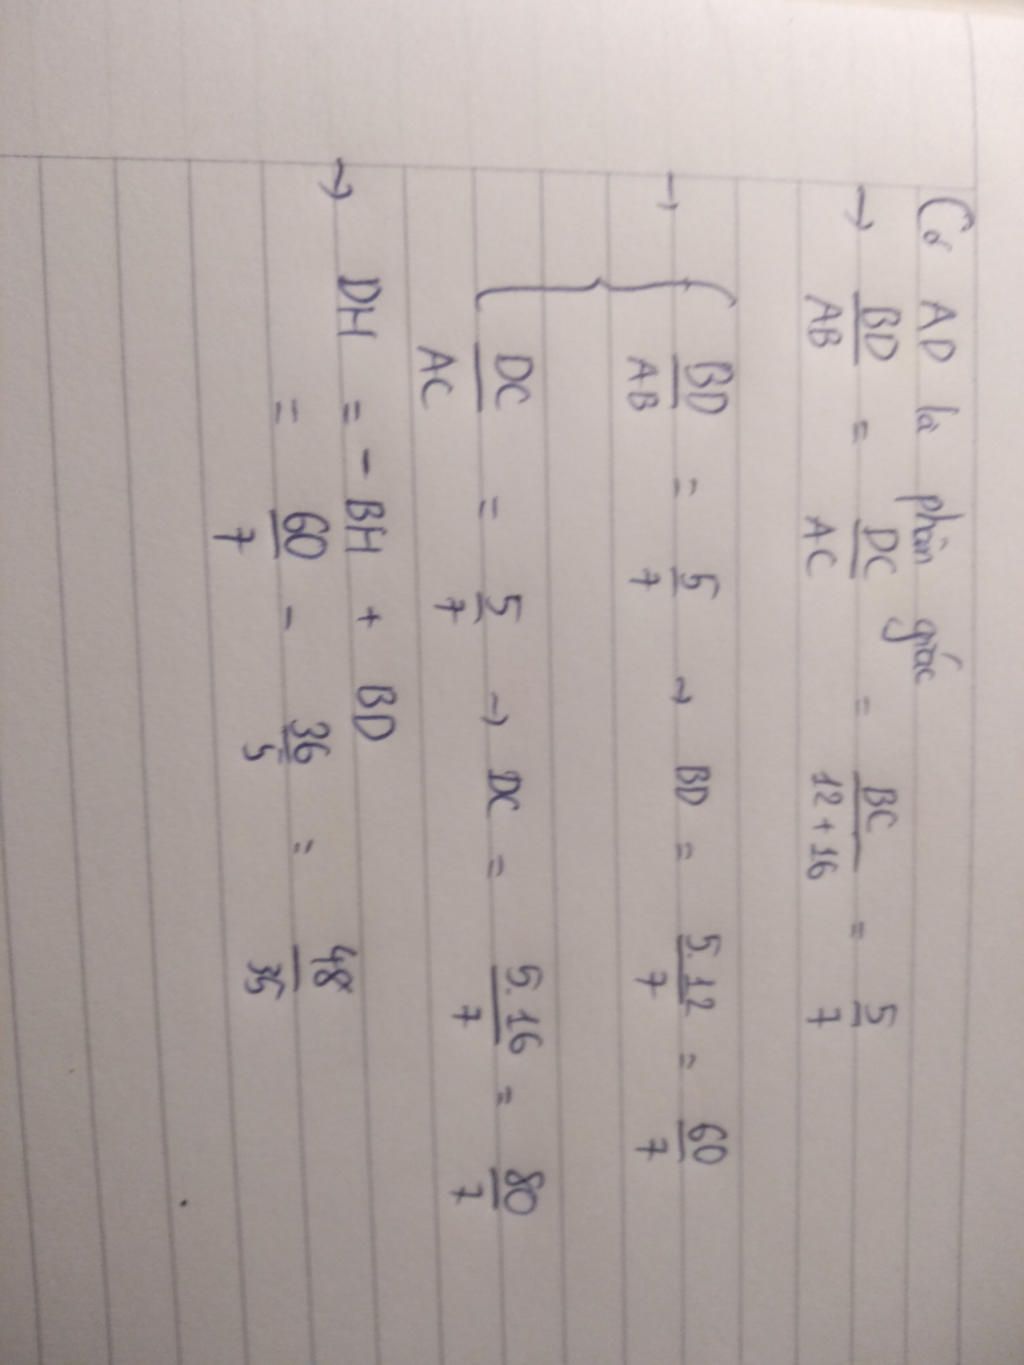 Có AD là phân giác
→ BD/AB = DC/AC = BC/12+16 = 5/7
→ { BD/AB = 5/7 → BD = 5.12/7 = 60/7
DC/AC = 5/7 → DC = 5.16/7 = 80/7
→ DH = - BH + BD
= 60/7 - 36/5 = 48/35